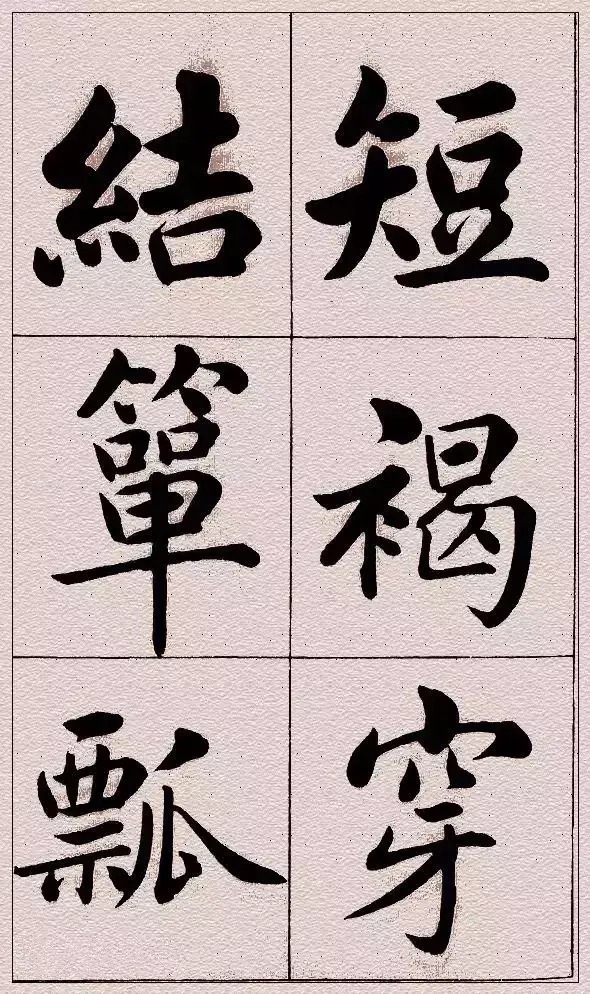 短褐穿
結簞瓢